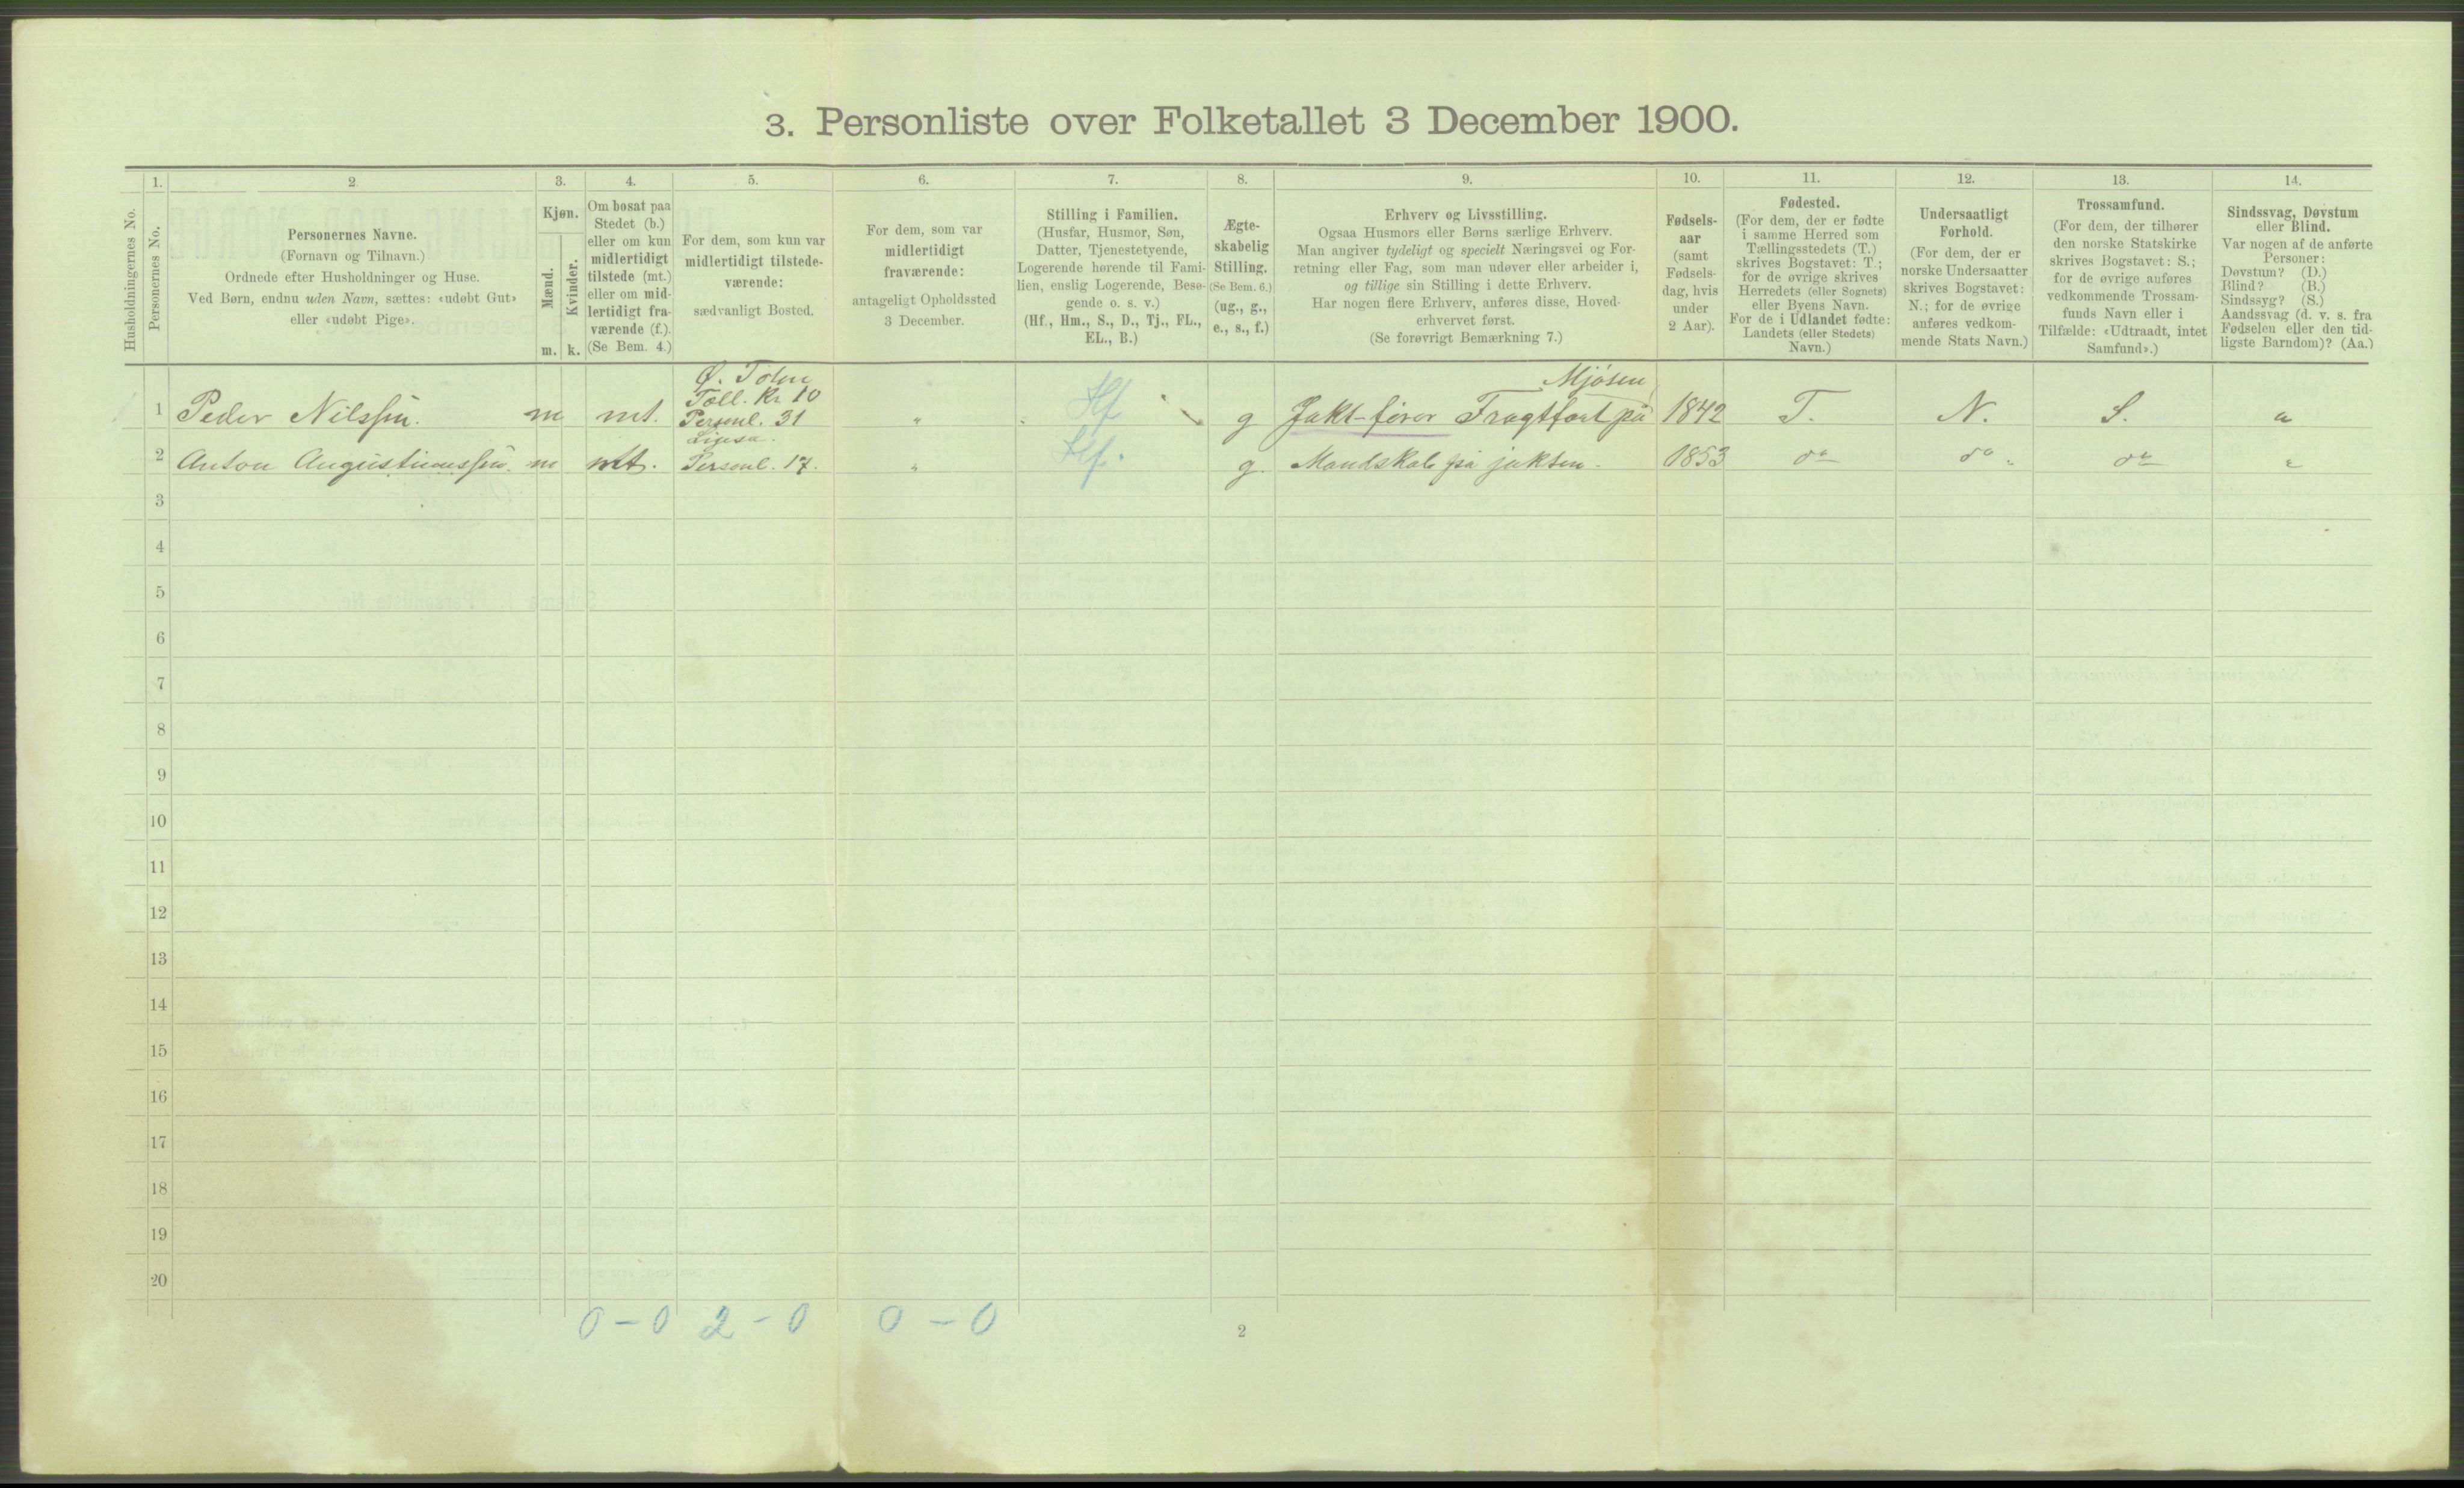 3. Personliste over Folketallet 3 December 1900.
1. 2 3. 4. 5. 6. 7. 8. 9. 10. 11. 12. 13. 14.
Husholdningernes No.
Personernes No.
Personernes Navne.
(Fornavn og Tilnavn.)
Ordnede efter Husholdninger og Huse.
Ved Børn, endnu uden Navn, sættes: «udøbt Gut»
eller «udøbt Pige».
Kjøn.
Mænd.
Kvinder.
m. k.
Om bosat paa
Stedet (b.)
eller om kun
midlertidigt
tilstede (mt.)
eller om mid-
lertidigt fra-
værende (f.).
(Se Bem. 4.)
For dem, som kun var
midlertidigt tilstede-
værende:
sædvanligt Bosted.
For dem, som var
midlertidigt
fraværende:
antageligt Opholdssted
3 December.
Stilling i Familien.
(Husfar, Husmor, Søn,
Datter, Tjenestetyende,
Logerende hørende til Fami-
lien, enslig Logerende, Besø-
gende o. s. v.)
(Hf., Hm., S., D., Tj., FL.,
EL., B.)
Ægte-
skabelig
Stilling.
(Se Bem. 6.)
(ug., g.,
e., s., f.)
Erhverv og Livsstilling.
Ogsaa Husmors eller Børns særlige Erhverv.
Man angiver tydeligt og specielt Næringsvei og For-
retning eller Fag, som man udøver eller arbeider i,
og tillige sin Stilling i dette Erhverv.
Har nogen flere Erhverv, anføres disse, Hoved-
erhvervet først.
(Se forøvrigt Bemærkning 7.)
Fødsels-
aar
(samt
Fødsels-
dag, hvis
under
2 Aar).
Fødested.
(For dem, der er fødte
i samme Herred som
Tællingsstedets (T.)
skrives Bogstavet: T.;
for de øvrige skrives
Herredets (eller Sognets)
eller Byens Navn.
For de i Udlandet fødte:
Landets (eller Stedets)
Navn.)
Undersaatligt
Forhold.
(For dem, der er
norske Undersaatter
skrives Bogstavet:
N.; for de øvrige
anføres vedkom-
mende Stats Navn.)
Trossamfund.
(For dem, der tilhører
den norske Statskirke
skrives Bogstavet: S.;
for de øvrige anføres
vedkommende Trossam-
funds Navn eller i
Tilfælde: «Udtraadt, intet
Samfund».)
Sindssvag, Døvstum
eller Blind.
Var nogen af de anførte
Personer:
Døvstum? (D.)
Blind? (B.)
Sindssyg? (S.)
Aandssvag (d. v. s. fra
Fødselen eller den tid-
ligste Barndom)? (Aa.)
Tæll. Kr 10
Mjøsen
1 Peder Nilssen. m mt. Personl. 31 " Hf g Jakt-fører Fragtfart på 1842 T. N. S. "
2 Anton Augustinussen. m mt. Personl. 17. " Hf. g. Mandskab på jakten. 1853 do do do "
3
4
5
6
7
8
9
10
11
12
13
14
15
16
17
18
19
20
0 - 0 2 - 0 0 - 0
2